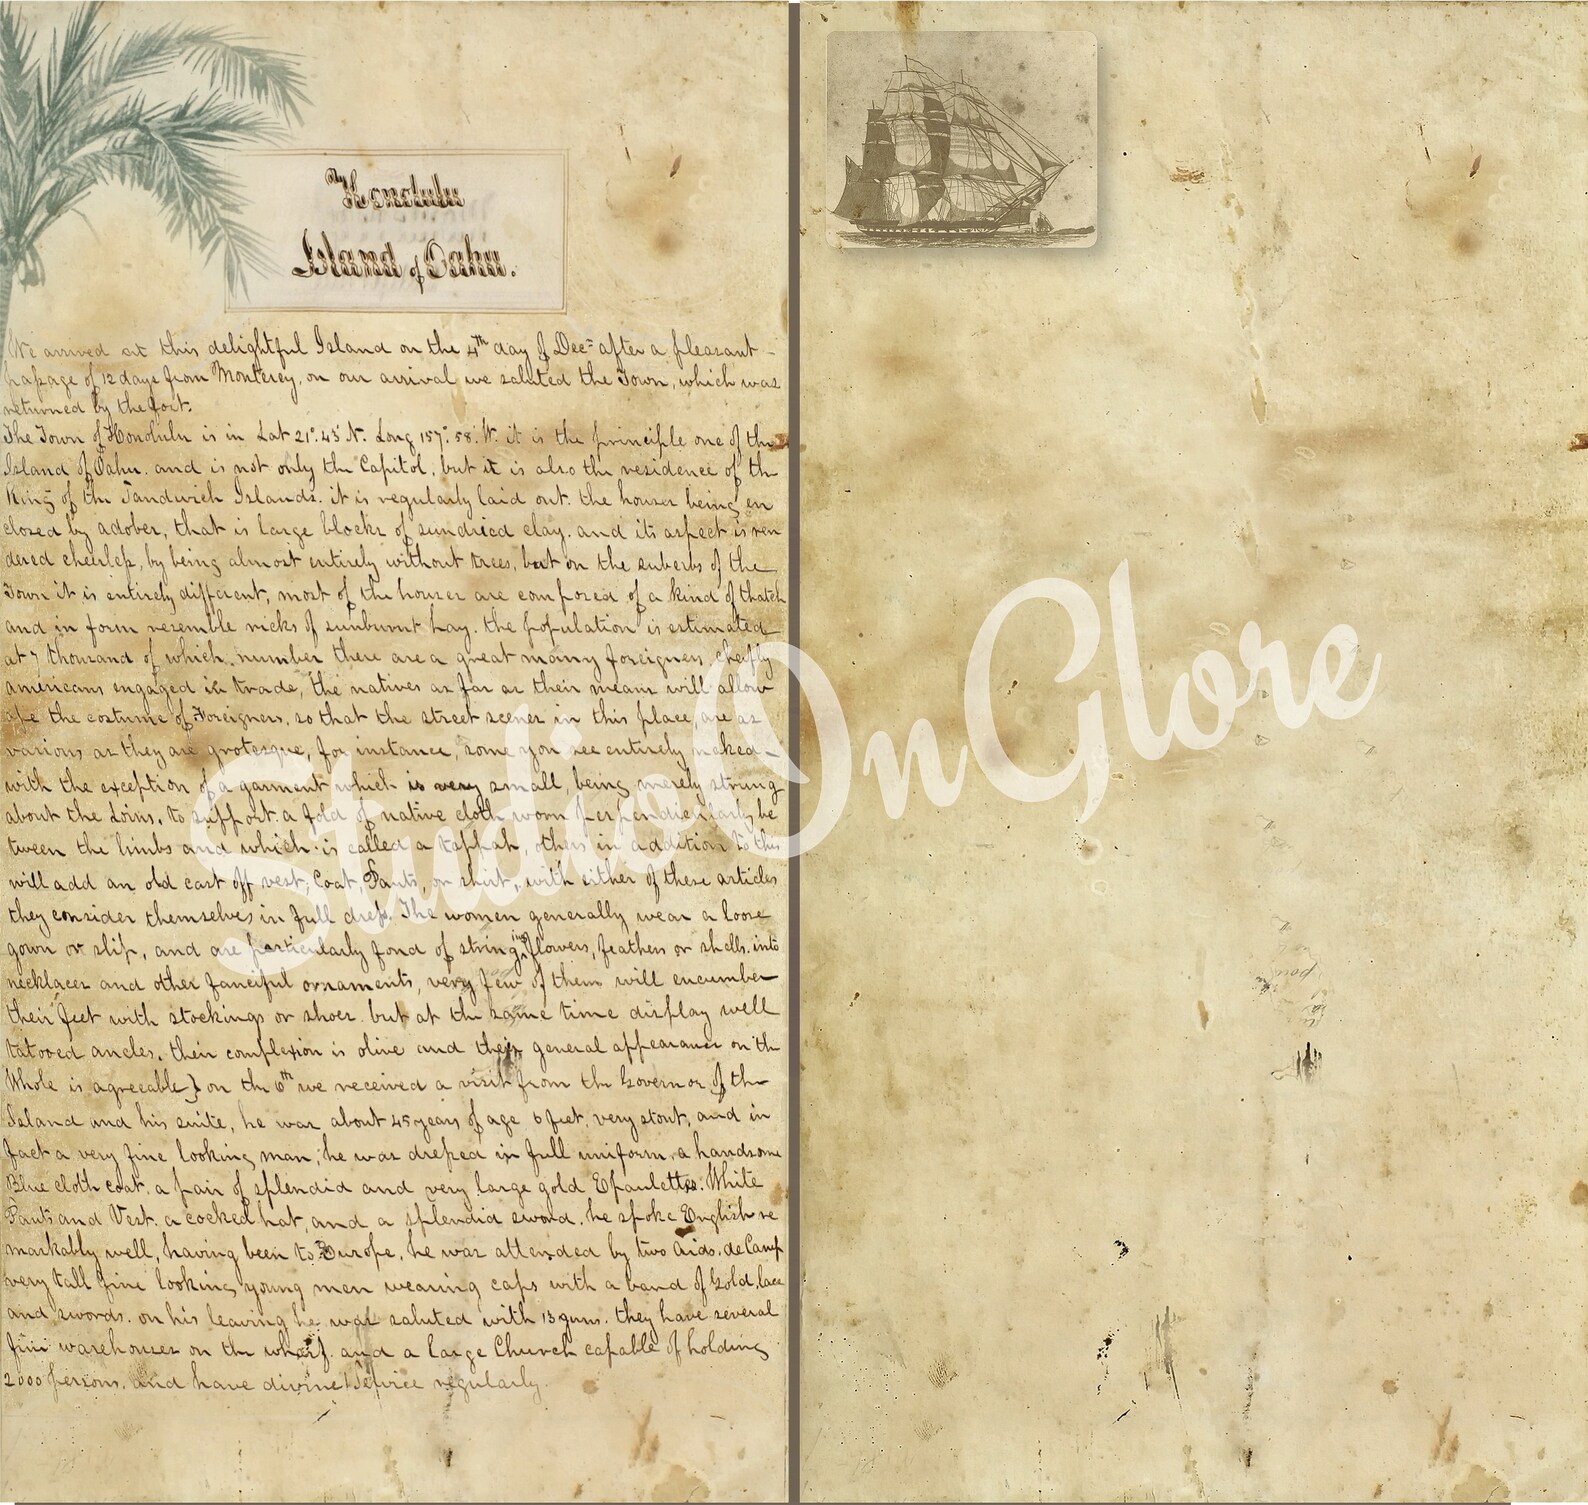 Honolulu
Island of Oahu.
We arrived at this delightful Island on the 4th day of Dec= after a pleasant
passage of 12 days from Monterey, on our arrival we saluted the Town, which was
returned by the fort.
The Town of Honolulu is in Lat 21°. 43' N. Long 157°. 58'. W. it is the principle one of the
Island of Oahu. and is not only the Capitol, but it is also the residence of the
King of the Sandwich Islands. it is regularly laid out. the houses being en
closed by adobes, that is large blocks of sundried clay. and its aspect is ren
dered cheerless, by being almost entirely without trees, but on the suberbs of the
Town it is entirely different, most of the houses are composed of a kind of thatch
and in form resemble ricks of sunburnt hay. the population is estimated
at 7 thousand of which number there are a great many foreigners, cheifly
americans engaged in trade, the natives as far as their means will allow
ape the costume of Foreigners, so that the street scenes in this place, are as
various as they are grotesque, for instance, some you see entirely naked
with the exception of a garment which is very small, being merely strung
about the Loins, to support a fold of native cloth worn perpendicularly be
tween the limbs and which is called a tappah, others in addition to this
will add an old cast off vest, Coat, Pants, or shirt, with either of these articles
they consider themselves in full dress. The women generally wear a loose
gown or slip, and are particularly fond of stringing flowers, feathers or shells into
necklaces and other fanciful ornaments, very few of them will encumber
their feet with stockings or shoes but at the same time display well
tatooed ancles, their complexion is olive and their general appearance on the
Whole is agreeable} on the 6th we received a visit from the Governor of the
Island and his suite, he was about 45 years of age 6 feet, very stout, and in
fact a very fine looking man, he was dressed in full uniform, a handsome
Blue cloth coat. a pair of splendid and very large gold Epaulettes. White
Pants and Vest. a cocked hat, and a splendid sword. he spoke English re
markably well, having been to Europe, he was attended by two Aids. de Camp
very tall fine looking young men wearing caps with a band of Gold, lace
and swords. on his leaving he was saluted with 13 guns. they have several
fine warehouses on the wharf. and a large Church capable of holding
2000 persons, and have divine Service regularly.
Studio OnGlore